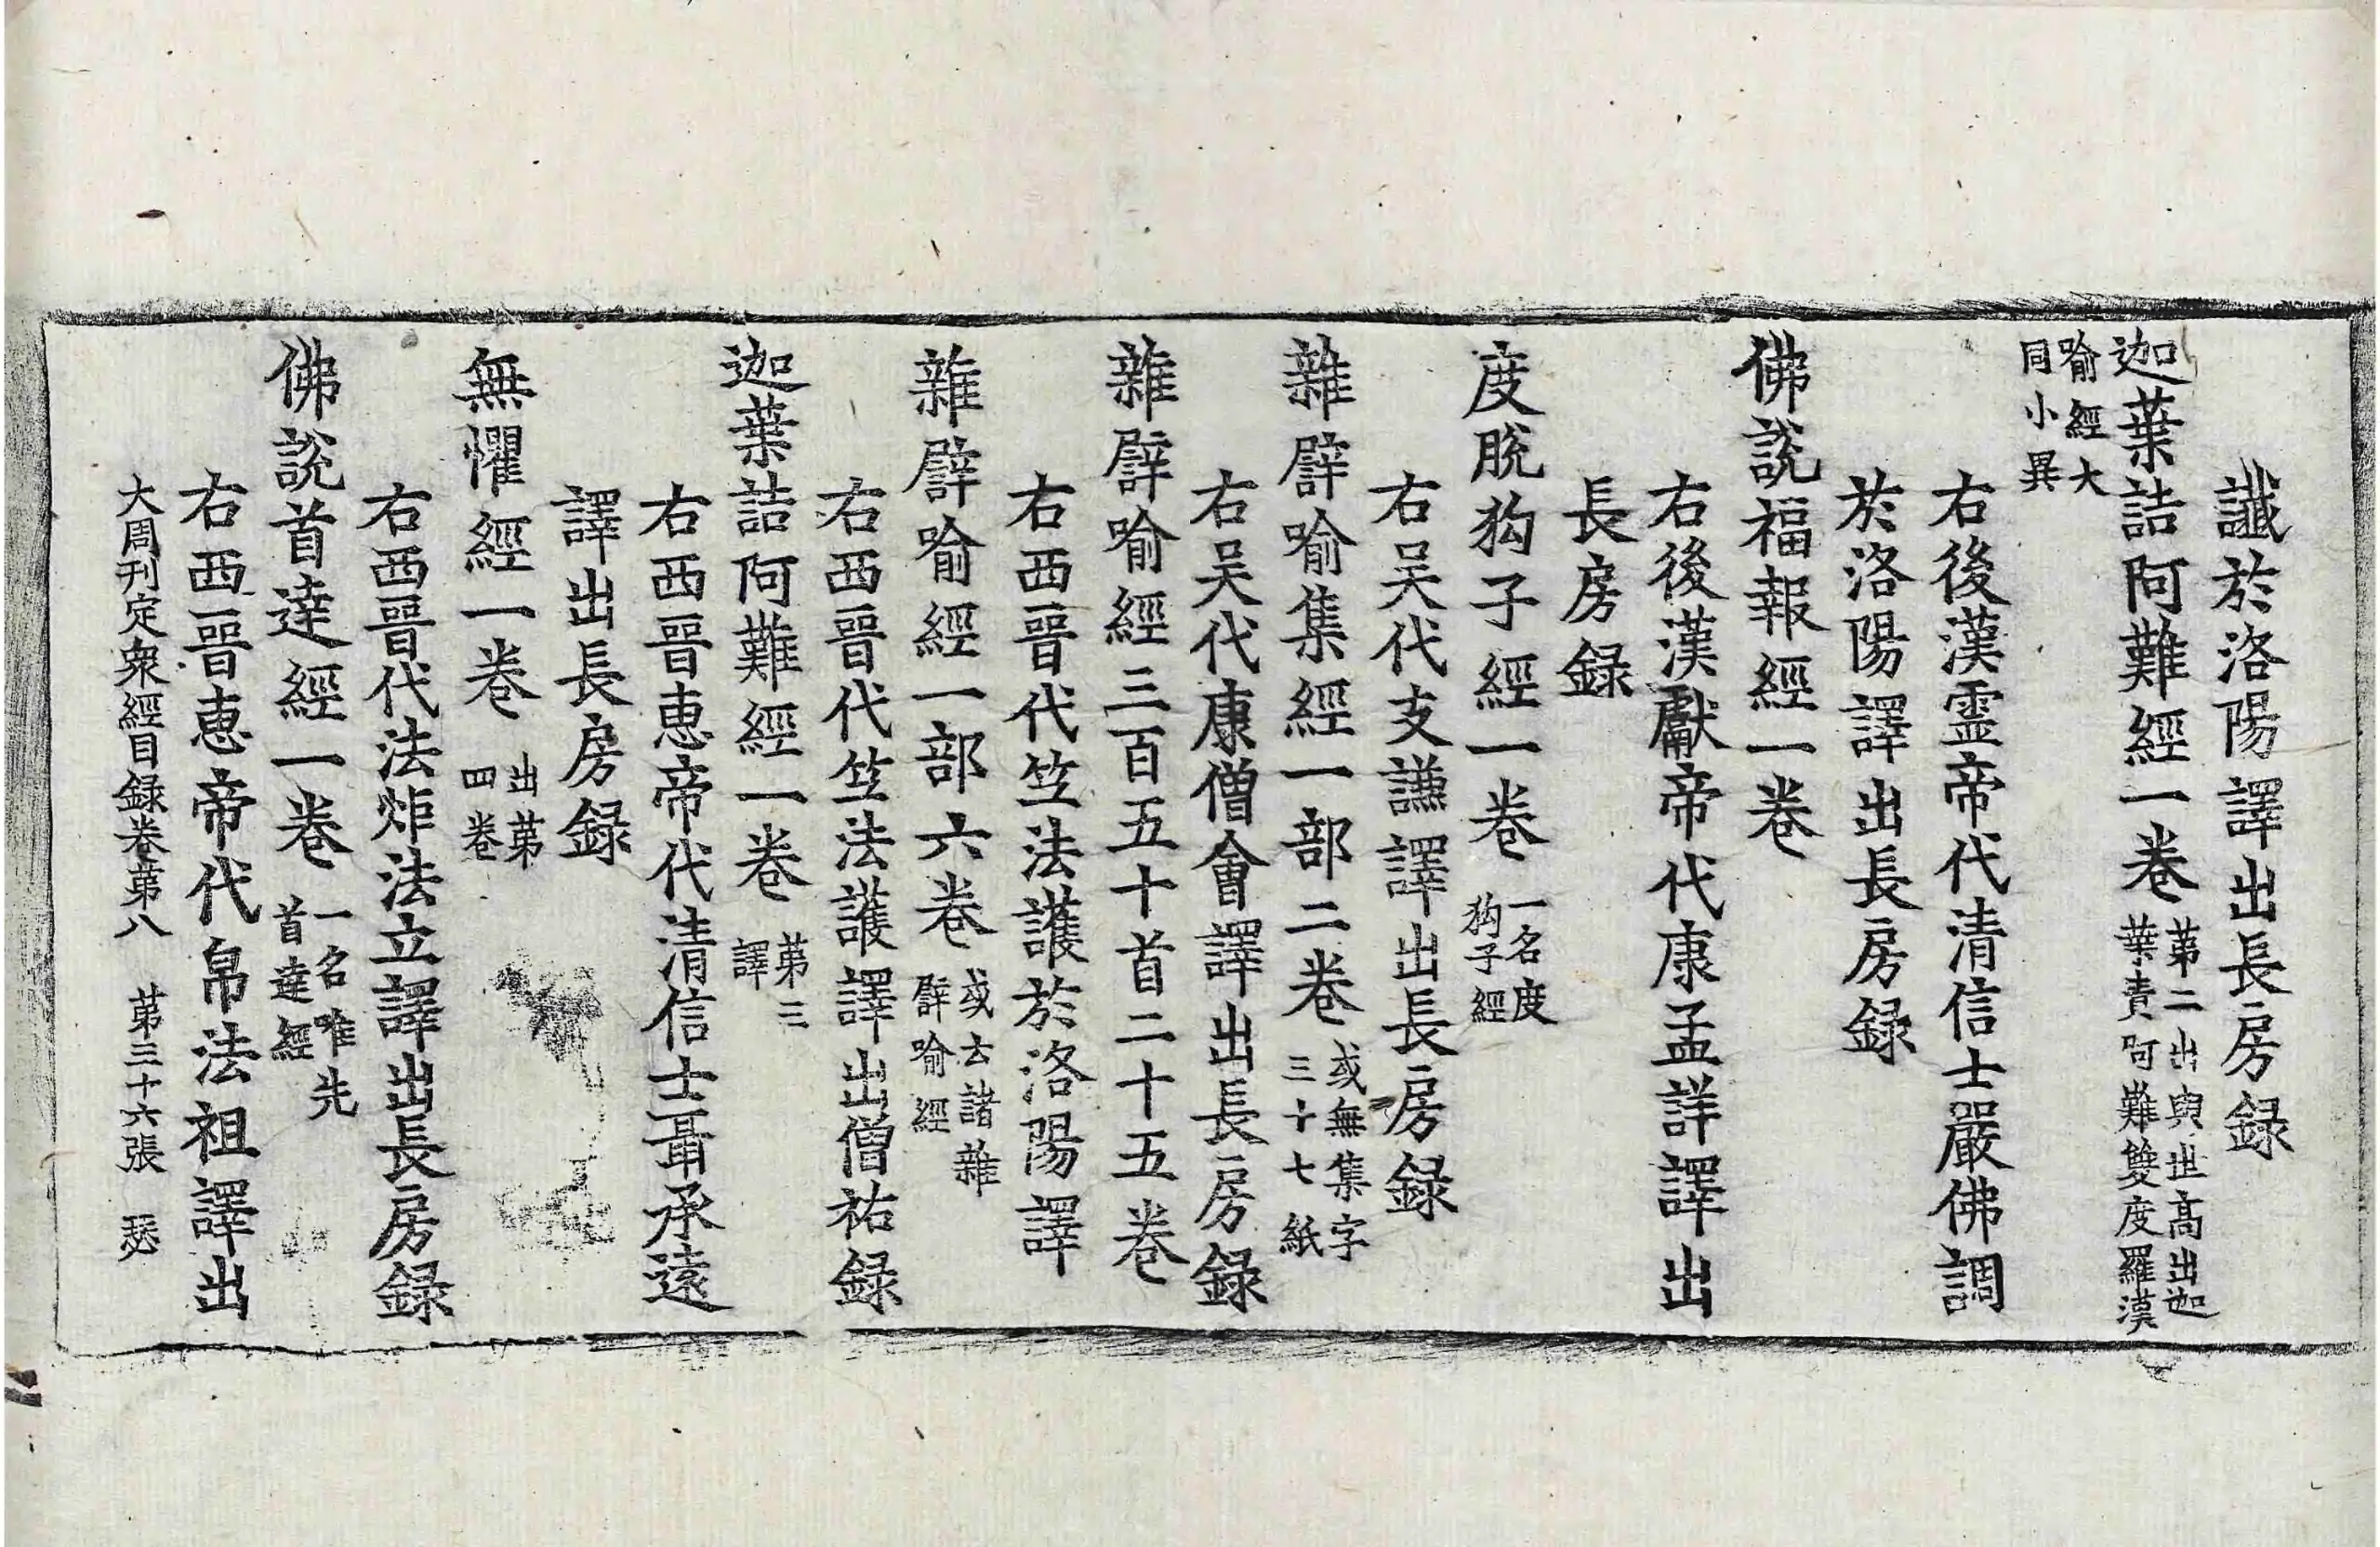 讖於洛陽譯出長房録
迦葉詰阿難經一卷 第二出與世高出迦葉責阿難雙度羅漢
喻經大同小異
右後漢霊帝代清信士嚴佛調
於洛陽譯出長房録
佛說福報經一卷
右後漢獻帝代康孟詳譯出
長房録
度脫狗子經一卷 一名度狗子經
右吴代支謙譯出長房録
雜譬喻集經一部二卷 或無集字三十七紙
右吴代康僧會譯出長房録
雜譬喻經三百五十首二十五卷
右西晉代竺法護於洛陽譯
雜譬喻經一部六卷 或云諸雜譬喻經
右西晉代竺法護譯出僧祐録
迦葉詰阿難經一卷 第三譯
右西晉恵帝代清信士聶承遠
譯出長房録
無懼經一卷 出第四卷
右西晉代法炬法立譯出長房録
佛說首達經一卷 一名唯先首達經
右西晉恵帝代帛法祖譯出
大周刊定衆經目録卷第八 第三十六張 瑟